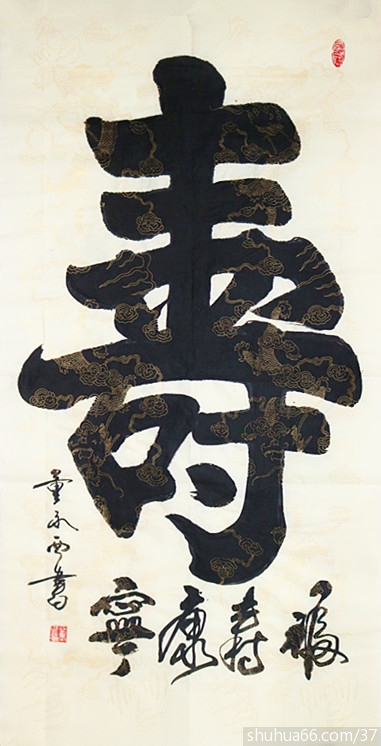 寿
福寿康宁
董永西书
shuhua66.com/37